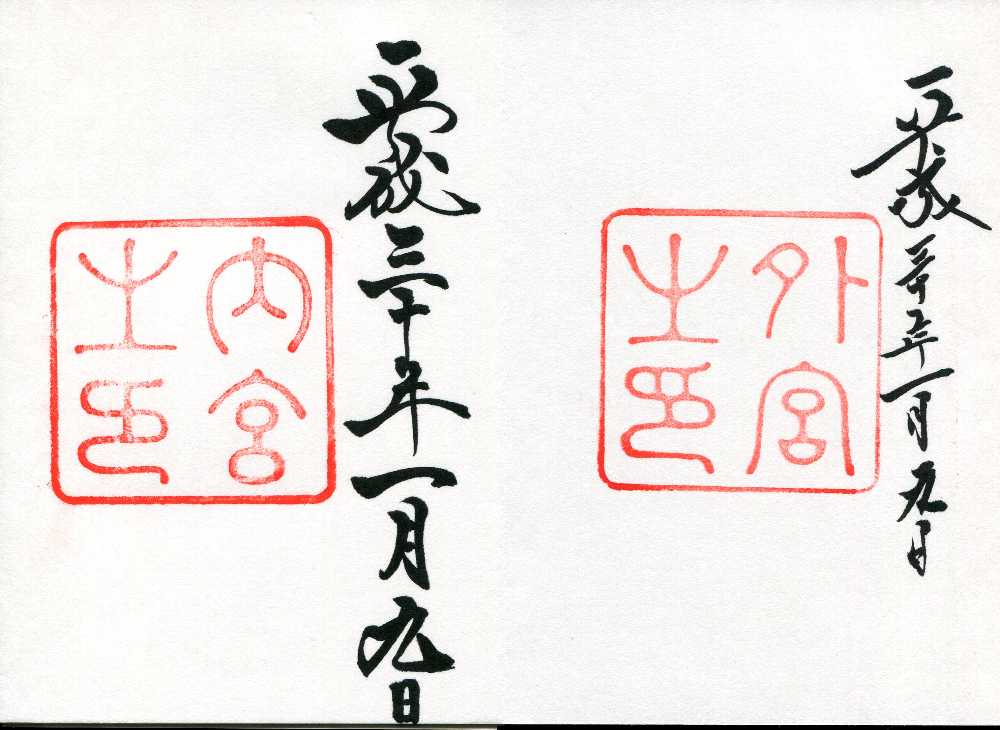 平成三十年一月九日
外宮
之印
平成三十年一月九日
内宮
之印